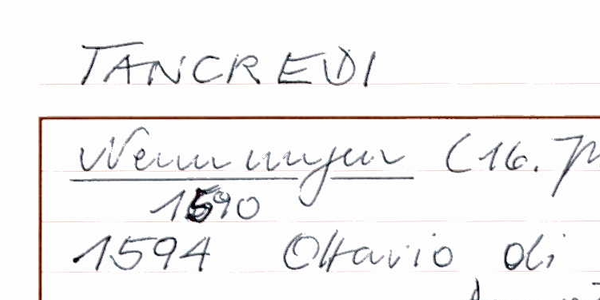 TANCREDI
Nennungen (16.
1590
1594 Ottavio di